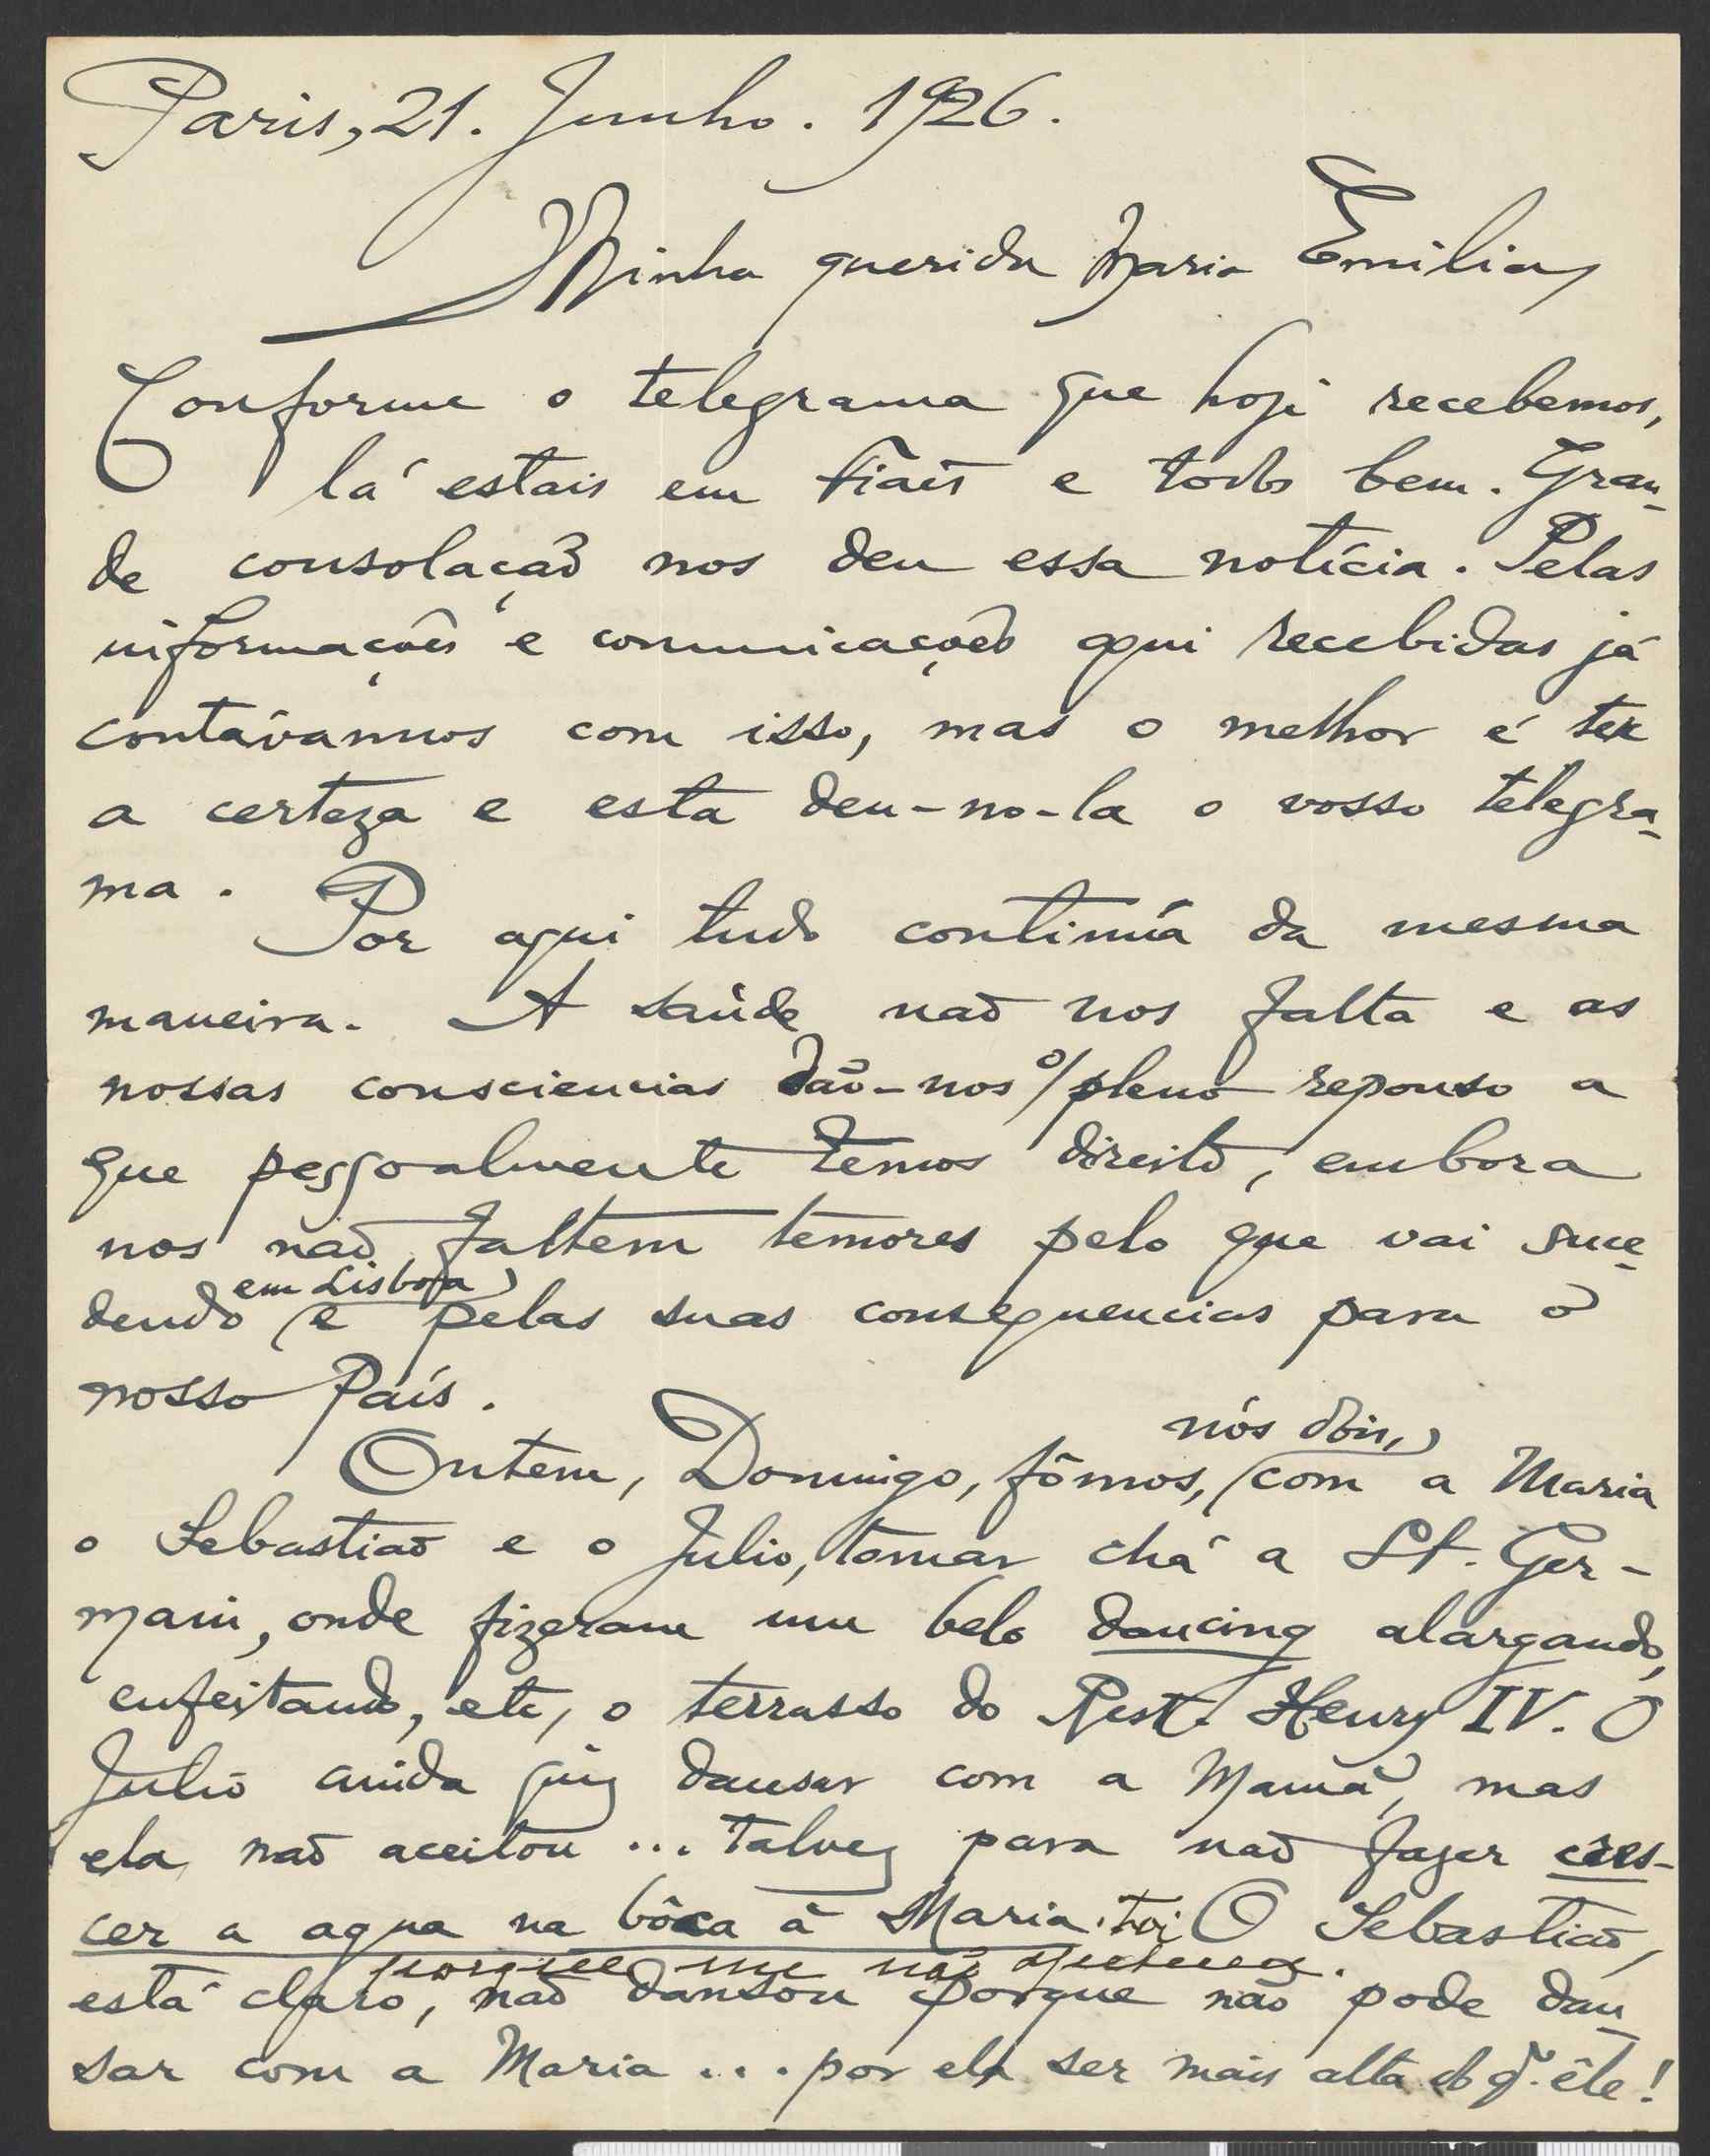 Paris, 21. Junho. 1926.
Minha querida Maria Emilia,
Conforme o telegrama que hoje recebemos,
lá estais em Fiais e todos bem. Gran-
de consolação nos deu essa notícia. Pelas
informações e comunicações aqui recebidas já
contávamos com isso, mas o melhor é ter
a certeza e esta deu-no-la o vosso telegra-
ma.
Por aqui tudo continúa da mesma
maneira. A saúde não nos falta e as
nossas consciencias dão-nos o pleno repouso a
que pessoalmente temos direito, embora
nos não faltem temores pelo que vai suce-
em Lisboa
dendo e pelas suas consequencias para o
nosso País.
nós dois,
Ontem, Domingo, fômos, com a Maria
o Sebastião e o Julio, tomar chá a St. Ger-
main, onde fizeram um belo dancing alargando,
enfeitando, etc, o terrasso do Rest. Henry IV. O
Julio ainda quiz dansar com a Mamã, mas
ela não aceitou ... talvez para não fazer cres-
cer a agua na bôca á Maria. Foi O Sebastião,
porque me não
está claro, não dansou porque não pode dan-
sar com a Maria ... por ela ser mais alta do q. êle!